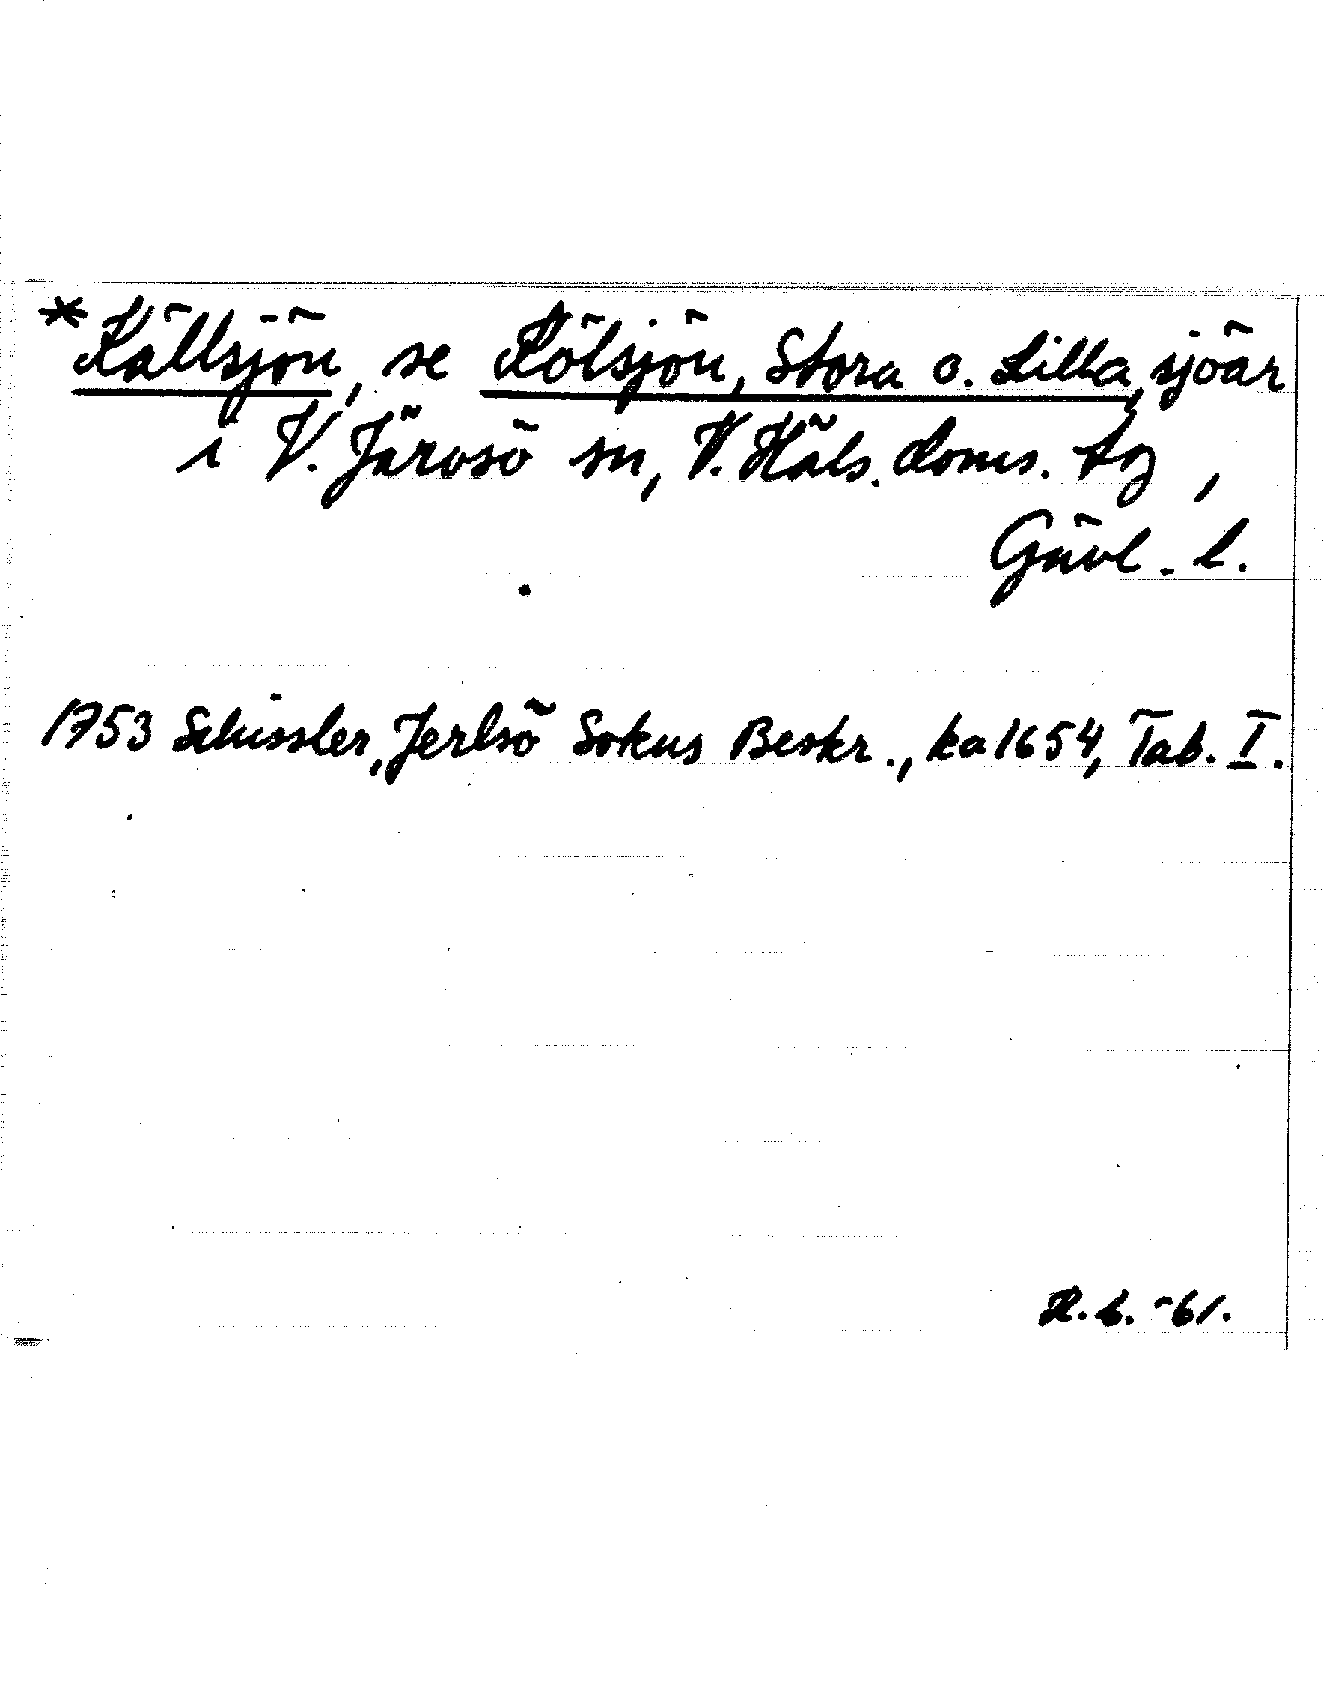 *Källsjön, se Kölsjön, Stora o. Lilla, sjöar
i V. Järvsö sn, V. Häls. doms. tg,
Gävl. l.
1753 Schissler, Jerlsö Sokns Beskr., ka 1654, Tab. I.
R.L. -61.